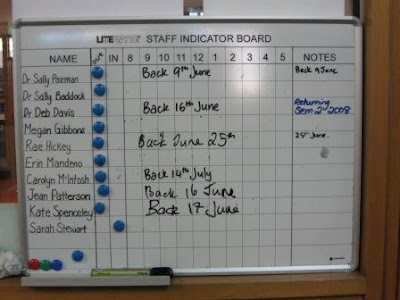 LITEWYTE STAFF INDICATOR BOARD
NAME OUT IN 8 9 10 11 12 1 2 3 4 5 NOTES
Dr Sally Pairman Back 9th June Back 9 June
Dr Sally Baddock
Dr Deb Davis Back 16th June Returning Sem 2 2008
Megan Gibbons
Rae Hickey Back June 25th 25th June
Erin Mandeno
Carolyn McIntosh Back 14th July
Jean Patterson Back 16 June
Kate Spenceley Back 17 June
Sarah Stewart